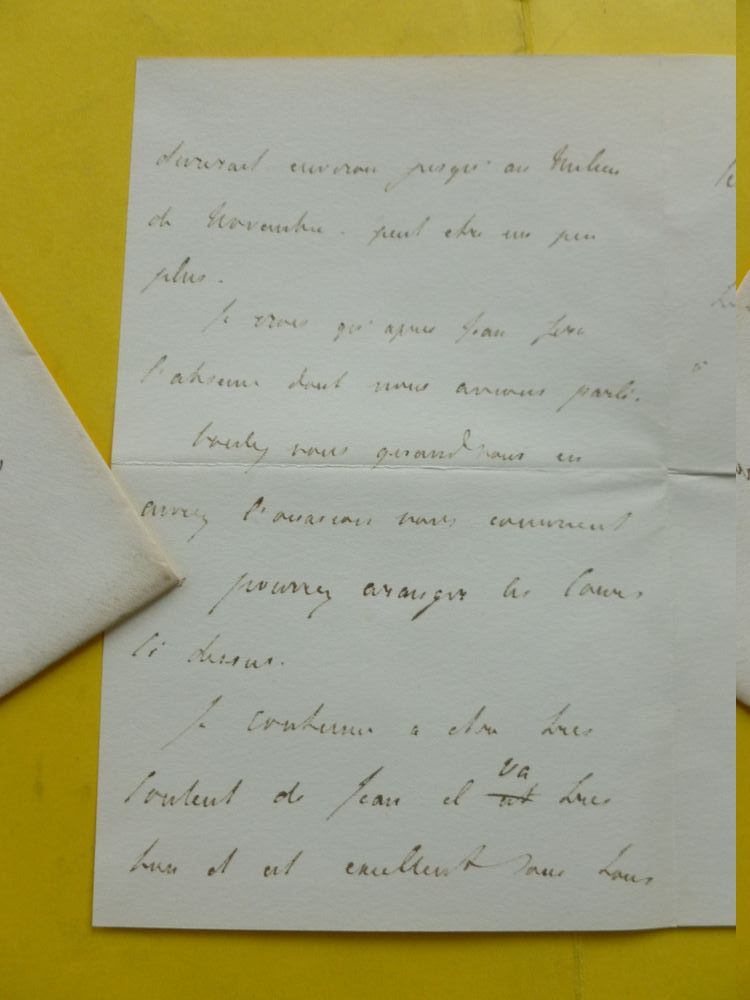 durerait environ jusqu'au Milieu
de Novembre. peut etre un peu
plus.
Je crois qu'apres Jean fera
l'absence dont nous avions parlé.
Voulez vous quand vous en
aurez l'occasion voir comment
pourrez aranger les Cours
Ci dessus.
Je continue a etre tres
Content de Jean il va tres
bien et est excellent sous tous